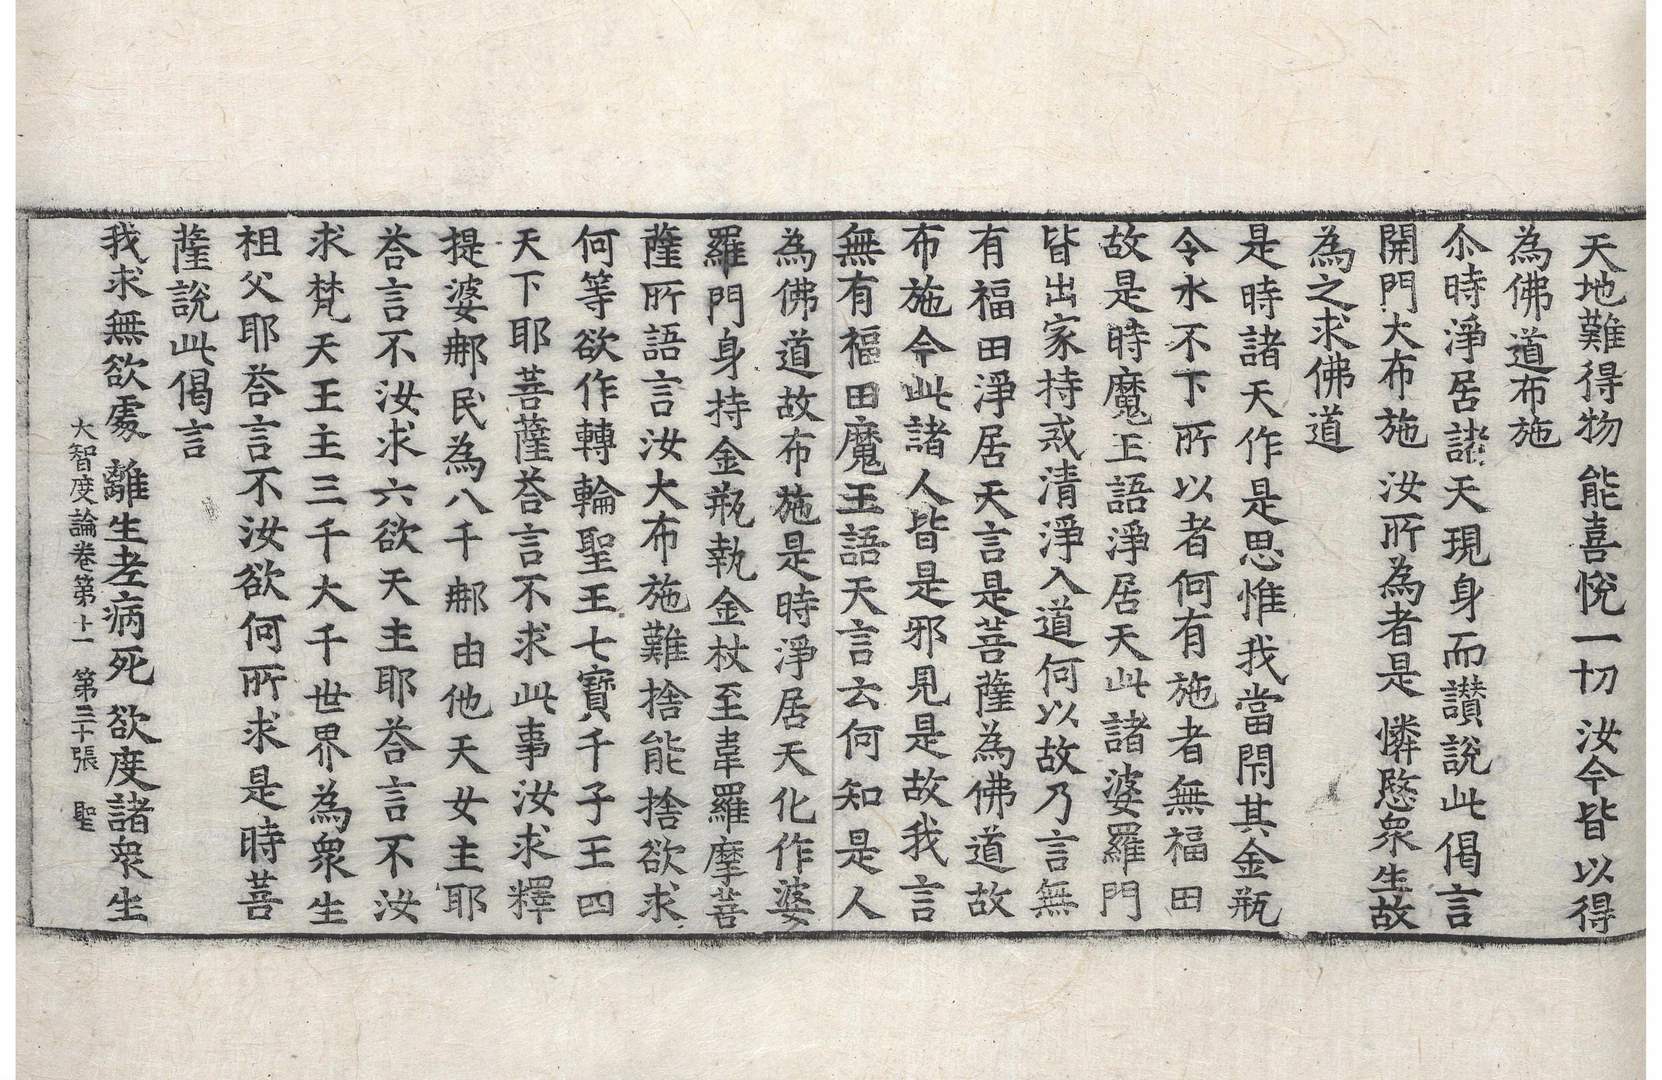 天地難得物 能喜悅一切 汝今皆以得
為佛道布施
尒時淨居諸天現身而讃說此偈言
開門大布施 汝所為者是 憐愍衆生故
為之求佛道
是時諸天作是思惟我當閇其金瓶
令水不下所以者何有施者無福田
故是時魔王語淨居天此諸婆羅門
皆出家持戒清淨入道何以故乃言無
有福田淨居天言是菩薩為佛道故
布施今此諸人皆是邪見是故我言
無有福田魔王語天言云何知是人
為佛道故布施是時淨居天化作婆
羅門身持金瓶執金杖至韋羅摩菩
薩所語言汝大布施難捨能捨欲求
何等欲作轉輪聖王七寶千子王四
天下耶菩薩荅言不求此事汝求釋
提婆那民為八千那由他天女主耶
荅言不汝求六欲天主耶荅言不汝
求梵天王主三千大千世界為衆生
祖父耶荅言不汝欲何所求是時菩
薩說此偈言
我求無欲處 離生老病死 欲度諸衆生
大智度論卷第十一 第三十張 聖